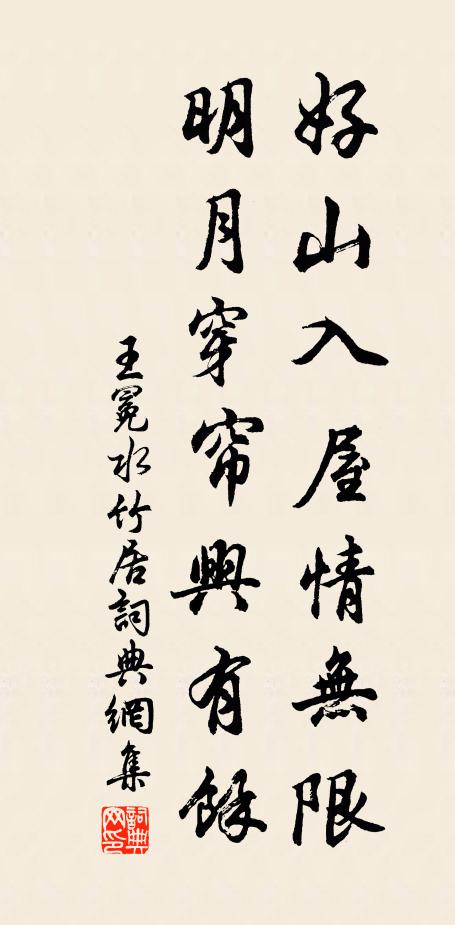 好山入屋情無限
明月穿帘興有餘
王冕水竹居詞典網集
詞典網印